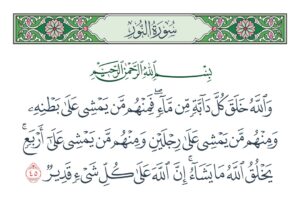 سُورَةُ النُّورِ
بِسْمِ اللَّهِ الرَّحْمَٰنِ الرَّحِيمِ
وَاللَّهُ خَلَقَ كُلَّ دَابَّةٍ مِّن مَّاءٍ فَمِنْهُم مَّن يَمْشِي عَلَىٰ بَطْنِهِ
وَمِنْهُم مَّن يَمْشِي عَلَىٰ رِجْلَيْنِ وَمِنْهُم مَّن يَمْشِي عَلَىٰ أَرْبَعٍ ۚ
يَخْلُقُ اللَّهُ مَا يَشَاءُ ۚ إِنَّ اللَّهَ عَلَىٰ كُلِّ شَيْءٍ قَدِيرٌ ٤٥